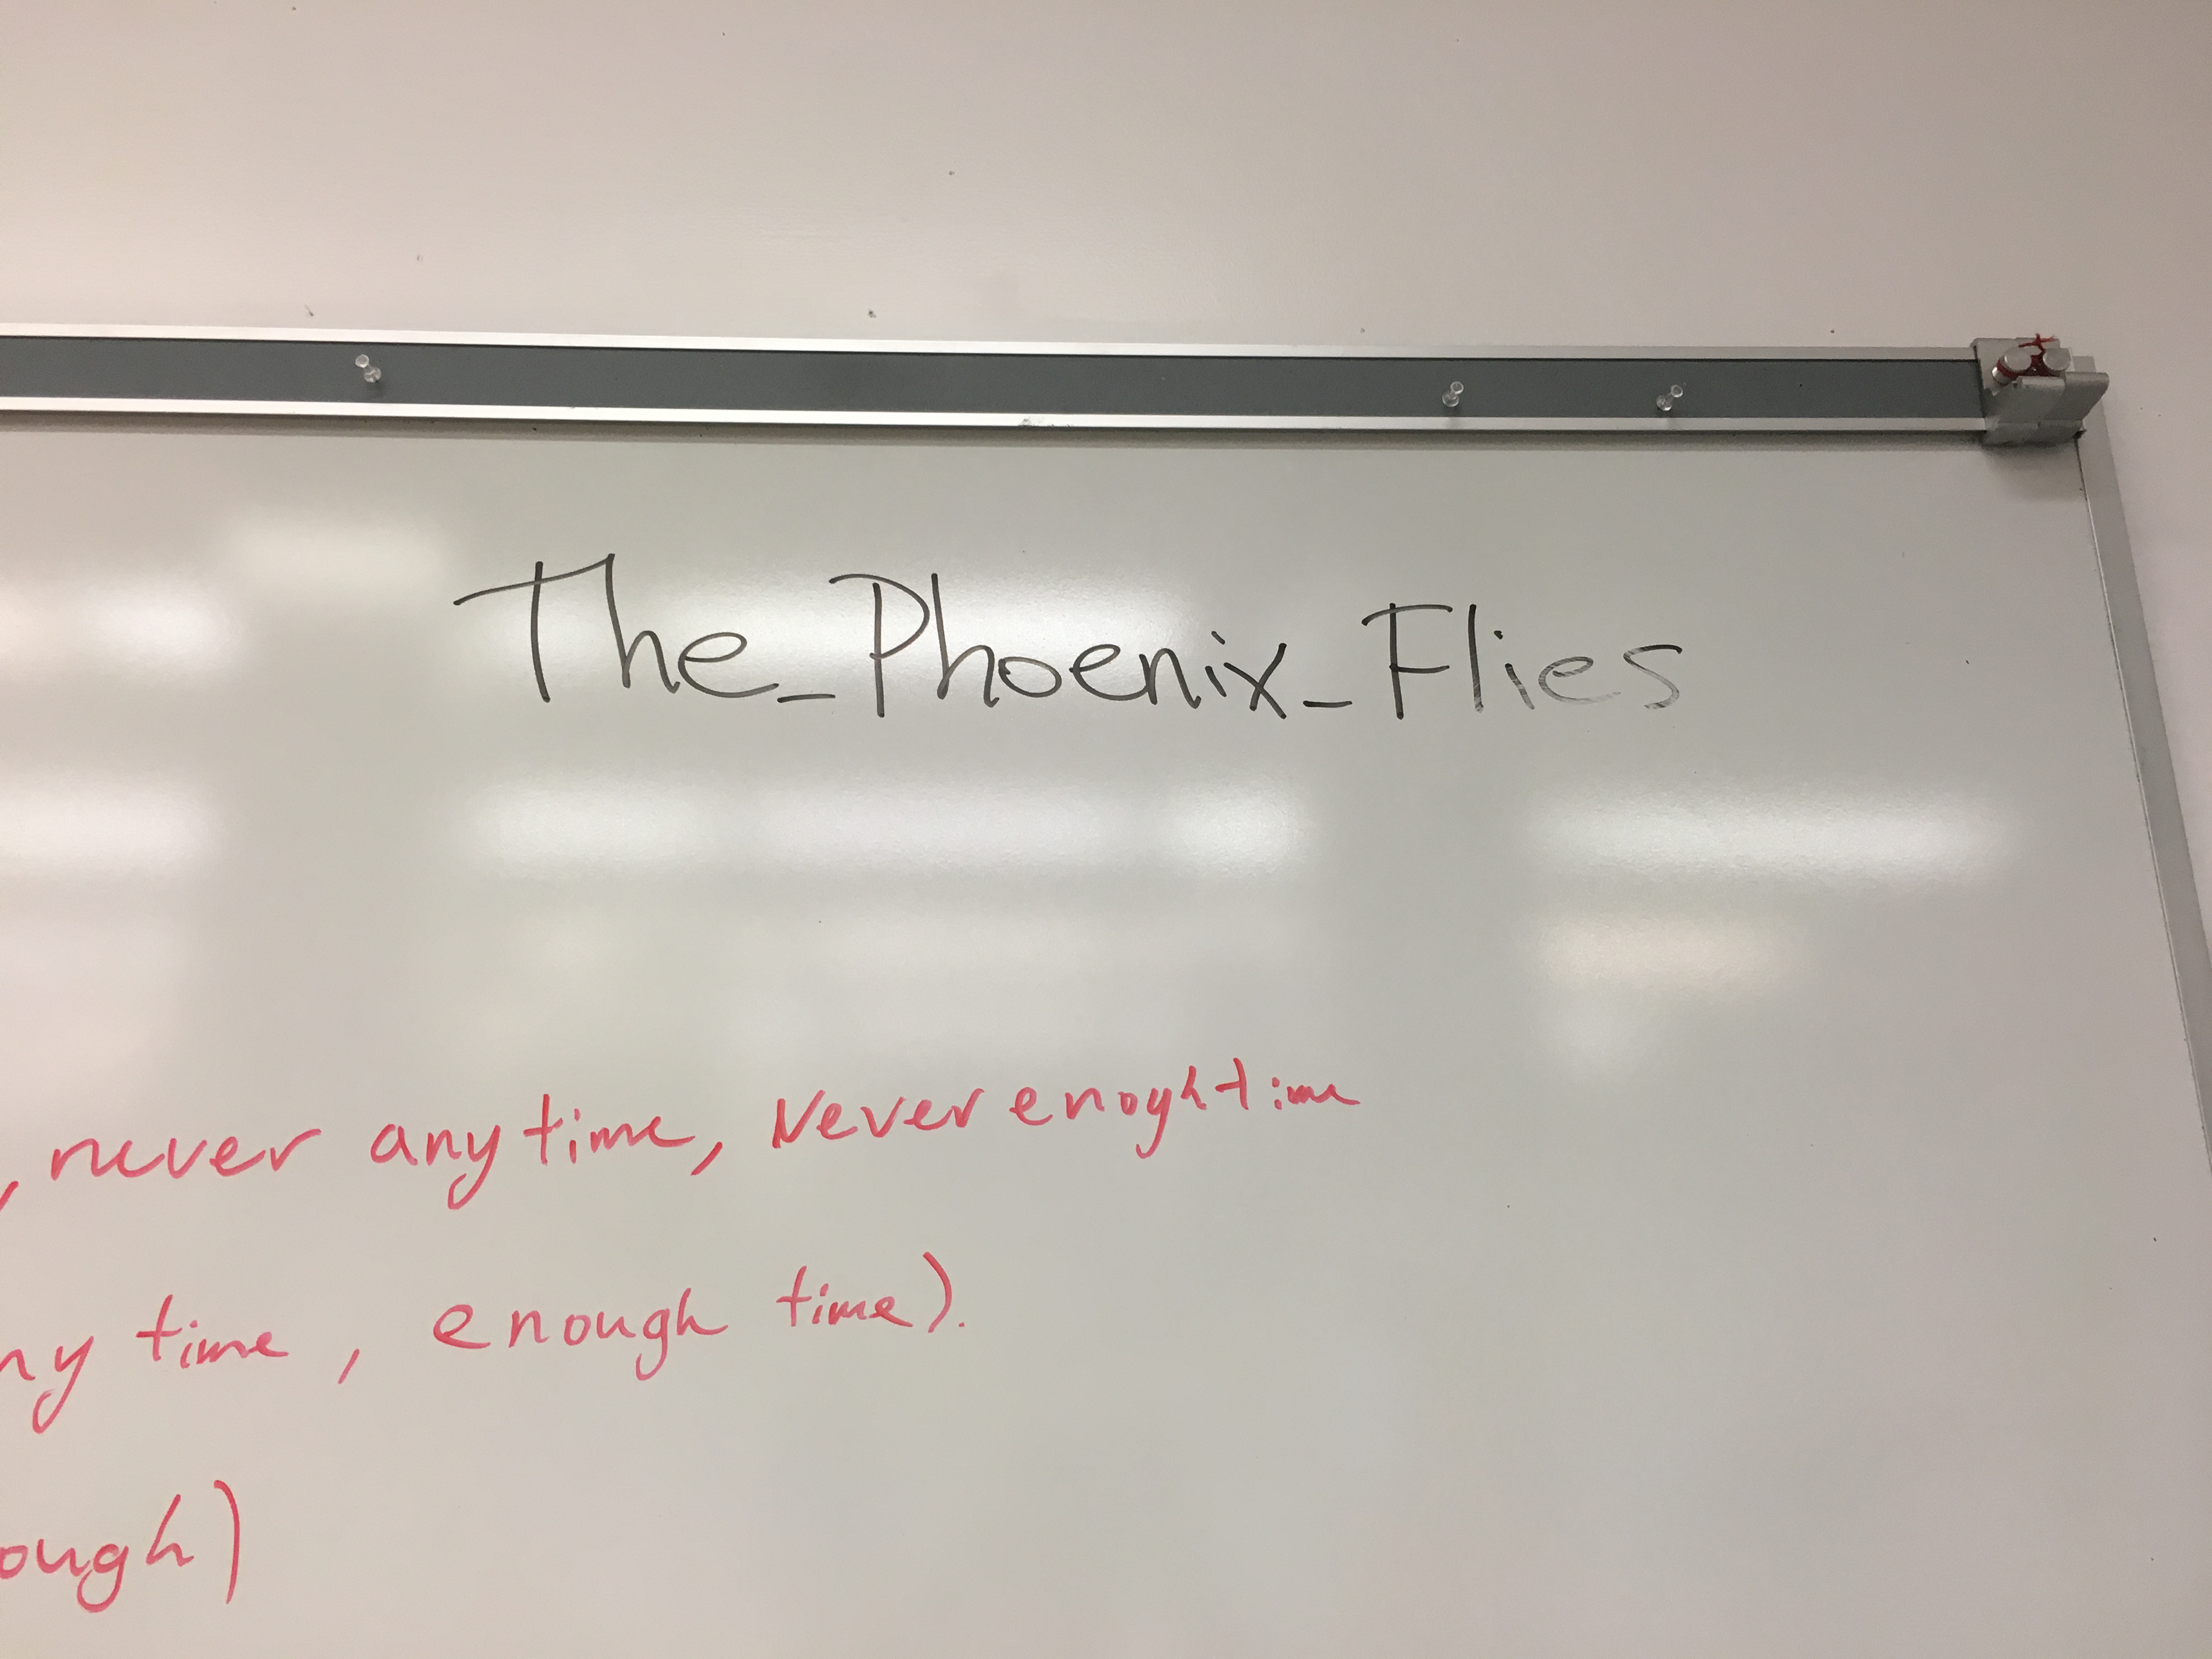 The_Phoenix_Flies
, never any time, Never enoght time
ny time, enough time).
ough)